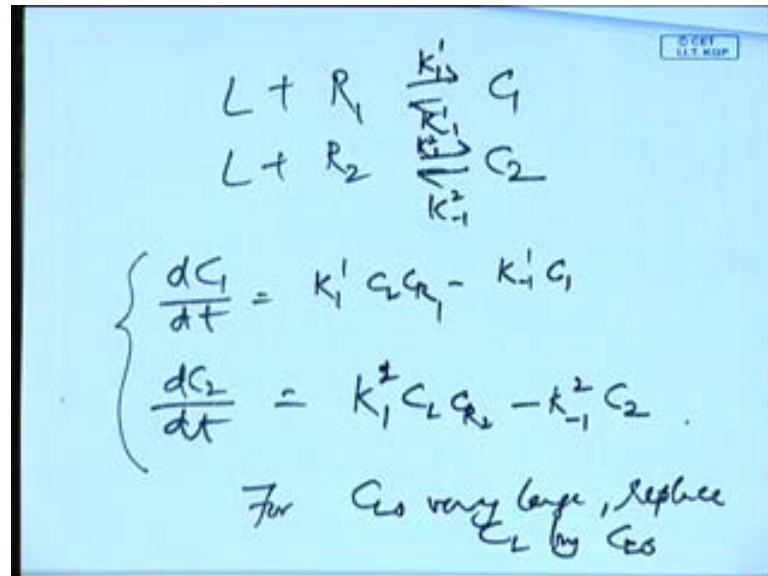 © CET
I.I.T. KGP
L + R₁ ⇌ C₁
K₁¹
K₋₁¹
L + R₂ ⇌ C₂
K₁²
K₋₁²
dC₁/dt = K₁¹ C_L C_R₁ - K₋₁¹ C₁
dC₂/dt = K₁² C_L C_R₂ - K₋₁² C₂ .
For C_L0 very large, replace
C_L by C_L0